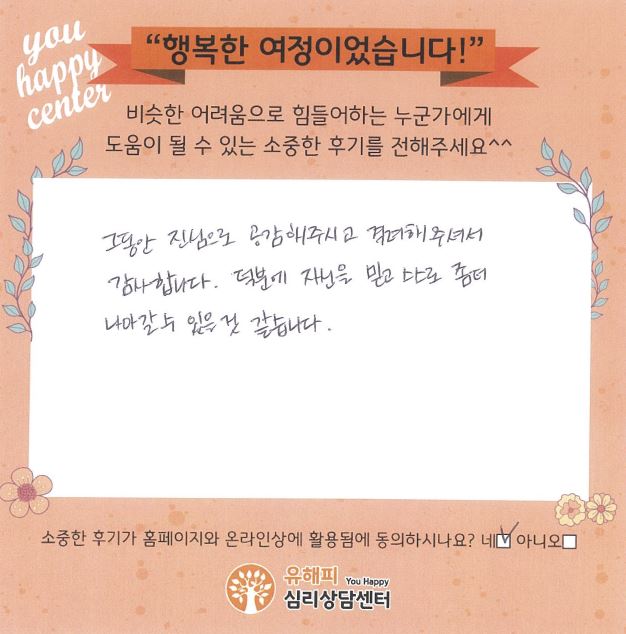 you
happy
center
“행복한 여정이었습니다!”
비슷한 어려움으로 힘들어하는 누군가에게
도움이 될 수 있는 소중한 후기를 전해주세요^^
그동안 진심으로 공감해주시고 격려해주셔서
감사합니다. 덕분에 자신을 믿고 스스로 좀더
나아갈 수 있을 것 같습니다.
소중한 후기가 홈페이지와 온라인상에 활용됨에 동의하시나요? 네☑ 아니오☐
유해피 You Happy
심리상담센터